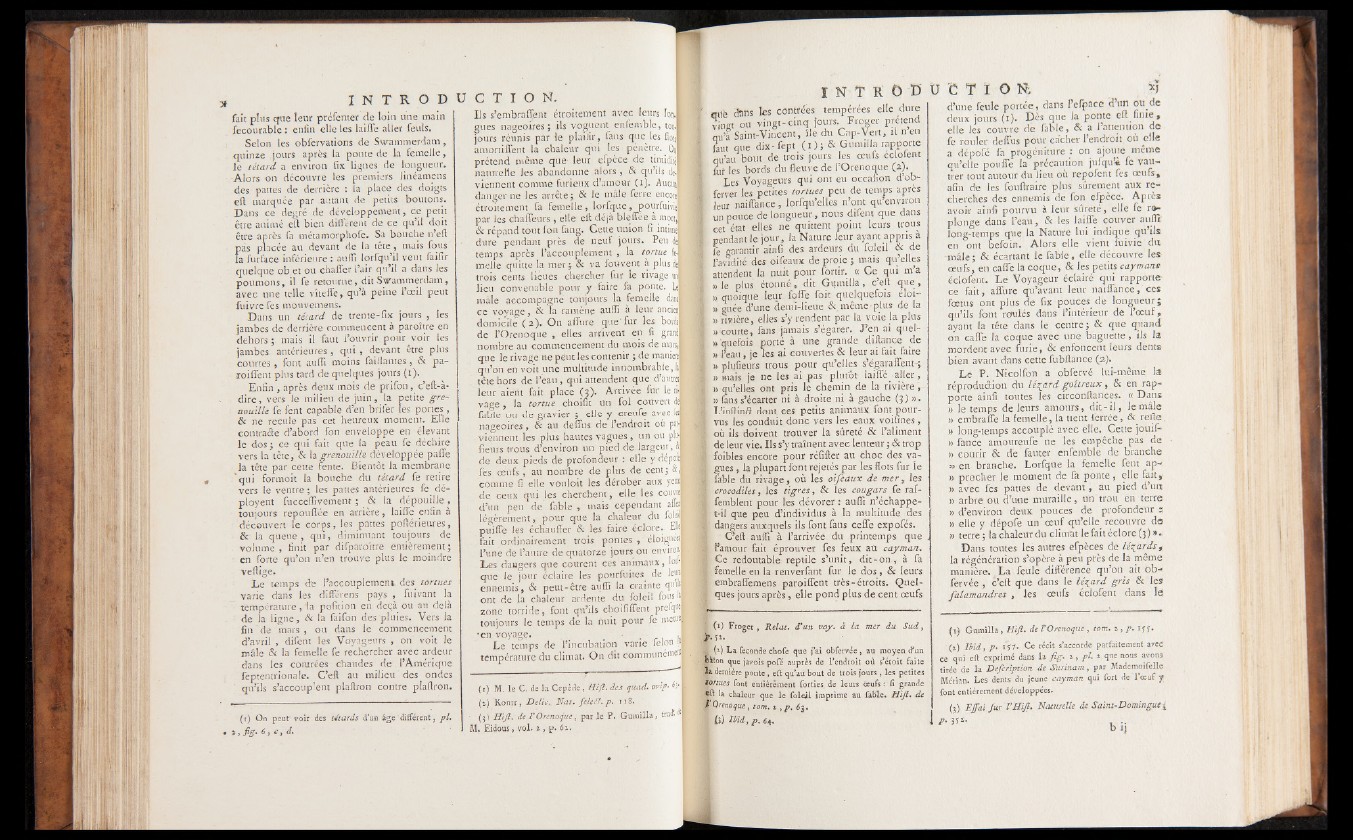 x
INTRODUCTION.
fait plus que leur préſenter de loin une main
ſecourable : enfin elle les laiſſe aller ſeuls.
Selon les obſervations de Swammerdam,
quinze jours après la ponte de la femelle,
le tétard a environ ſix lignes de longueur.
Alors on découvre les premiers linéamens
des pattes de derrière : la place des doigts
eſt marquée par autant de petits boutons.
Dans ce degré de développement, ce petit
être animé eſt bien différent de ce qu'il doit
être après ſa métamorphoſe. Sa bouche n'eſt
pas placée au devant de la tête, mais ſous
la ſurface inférieure : auſſi lorſqu'il veut ſaiſir
quelque objet ou chaſſer l'air qu'il a dans les
poumons, il ſe retourne, dit Swammerdam,
avec une telle viteſſe, qu'à peine l'œil peut
ſuivre ſes mouvemens.
Dans un tétard de trente-ſix jours, les
jambes de derrière commencent à paroître en
dehors ; mais il faut l'ouvrir pour voir les
jambes antérieures, qui, devant être plus
courtes, font auſſi moins ſaillantes, & pa-
roiſſent plus tard de quelques jours (1).
Enfin, après deux mois de priſon, c'eſt-à-
dire, vers le milieu de juin, la petite gre-
nouille ſe ſent capable d'en briſer les portes,
& ne recule pas cet heureux moment. Elle
contracte d'abord ſon enveloppe en élevant
le dos ; ce qui fait que la peau ſe déchire
vers la tête, & la grenouille développée paſſe
la tête par cette fente. Bientôt la membrane
qui formoit la bouche du tétard ſe retire
vers le ventre ; les pattes antérieures ſe dé-
ployent ſucceſſivement ; & la dépouille,
toujours repouſſée en arrière, laiſſe enfin à
découvert le corps, les pattes poſtérieures,
& la queue, qui, diminuant toujours de
volume, finit par diſparoître entièrement ;
en ſorte qu'on n'en trouve plus le moindre
veſtige.
Le temps de l'accouplement des tortues
varie dans les différens pays, ſuivant la
température, la poſition en deçà ou au delà
de la ligne, & la ſaiſon des pluies. Vers la
fin de mars, ou dans le commencement
d'avril, diſent les Voyageurs, on voit le
mâle & la femelle ſe rechercher avec ardeur
dans les contrées chaudes de l'Amérique
ſeptentrionale. C'eſt au milieu des ondes
qu'ils s'accouplent plaſtron contre plaſtron.
(1) On peut voir des tétards d'un âge différent, pl.
2, fig. 6, c, d.
Ils s'embraſſent étroitement avec leurs
gues nageoires ; ils voguent enſemble,
jours réunis par le plaiſir, ſans que les
amortiſſent la chaleur qui les pénètre.
prétend même que leur eſpèce de
naturelle les abandonne alors, & qu'ils
viennent comme furieux d'amour (1).
danger ne les arrête ; & le mâle ſerre encore
étroitement ſa femelle, lorſque, pourſuivie
par les chaſſeurs, elle eſt déjà bleſſée à mort,
& répand tout ſon ſang. Cette union ſi intime
dure pendant près de neuf jours. Peu
temps après l'accouplement, la tortue
melle quitte la mer ; & va ſouvent à plus
trois cents lieues chercher ſur le rivage
lieu convenable pour y faire ſa ponte.
mâle accompagne toujours la femelle dans
ce voyage, & la ramène auſſi à leur ancien
domicile (2). On aſſure que ſur les bords
de l'Orenoque, elles arrivent en ſi grand
nombre au commencement du mois de mars,
que le rivage ne peut les contenir ; de manière
qu'on en voit une multitude innombrable, la
tête hors de l'eau, qui attendent que d'autres
leur aient fait place (3). Arrivée ſur le
vage, la tortue choiſit un ſol couvert de
ſable ou de gravier ; elle y creuſe avec ſes
nageoires, & au deſſus de l'endroit où
viennent les plus hautes vagues, un ou
ſieurs trous d'environ un pied de largeur,
de deux pieds de profondeur : elle y dépoſe
ſes œufs, au nombre de plus de cent ; &
comme ſi elle vouloit les dérober aux yeux
de ceux qui les cherchent, elle les couvre
d'un peu de ſable, mais cependant
légèrement, pour que la chaleur du ſoleil
puiſſe les échauffer & les faire éclore. Elle
fait ordinairement trois pontes, éloignées
l'une de l'autre de quatorze jours ou environ.
Les dangers que courent ces animaux,
que le jour éclaire les pourſuites de leurs
ennemis, & peut-être auſſi la crainte qu'ils
ont de la chaleur ardente du ſoleil ſous la
zone torride, font qu'ils choiſiſſent preſque
toujours le temps de la nuit pour ſe mettre
en voyage.
Le temps de l'incubation varie ſelon la
température du climat. On dit communément
(1) M. le C. de la Cepède, Hiſt. des quad. ovip. 
(2) Komt, Delic. Nat. ſelect. p. 118.
(3) Hiſt. de l'Orenoque, par le P. Gumilla,
M. Eidous, vol. 2, p. 62.
INTRODUCTION.
xj
que dans les contrées tempérées elle dure
vingt ou vingt-cinq jours. Froger prétend
qu'à Saint-Vincent, île du Cap-Vert, il n'en
faut que dix-ſept (1) ; & Gumilla rapporte
qu'au bout de trois jours les œufs écloſent
ſur les bords du fleuve de l'Orenoque (2).
Les Voyageurs qui ont eu occaſion d'ob-
ſerver les petites tortues peu de temps après
leur naiſſance, lorſqu'elles n'ont qu'environ
un pouce de longueur, nous diſent que dans
cet état elles ne quittent point leurs trous
pendant le jour, la Nature leur ayant appris à
ſe garantir ainſi des ardeurs du ſoleil & de
l'avidité des oiſeaux de proie ; mais qu'elles
attendent la nuit pour ſortir. « Ce qui m'a
» le plus étonné, dit Gumilla, c'eſt que,
» quoique leur foſſe ſoit quelquefois éloi-
» gnée d'une demi-lieue & même plus de la
» rivière, elles s'y rendent par la voie la plus
» courte, ſans jamais s'égarer. J'en ai quel-
» quefois porté à une grande diſtance de
» l'eau, je les ai couvertes & leur ai fait faire
» pluſieurs trous pour qu'elles s'égaraſſent ;
» mais je ne les ai pas plutôt laiſſé aller,
» qu'elles ont pris le chemin de la rivière,
» ſans s'écarter ni à droite ni à gauche (3) ».
L'inſtinct dont ces petits animaux ſont pour-
vus les conduit donc vers les eaux voiſines,
où ils doivent trouver la sûreté & l'aliment
de leur vie. Ils s'y traînent avec lenteur ; & trop
foibles encore pour réſiſter au choc des va-
gues, la plupart ſont rejetés par les flots ſur le
ſable du rivage, où les oiſeaux de mer, les
crocodiles, les tigres, & les cougars ſe raſ-
ſemblent pour les dévorer : auſſi n'échappe-
t-il que peu d'individus à la multitude des
dangers auxquels ils ſont ſans ceſſe expoſés.
C'eſt auſſi à l'arrivée du printemps que
l'amour fait éprouver ſes feux au cayman.
Ce redoutable reptile s'unit, dit-on, à ſa
femelle en la renverſant ſur le dos, & leurs
embraſſemens paroiſſent très-étroits. Quel-
ques jours après, elle pond plus de cent œufs
(1) Froger, Relat. d'un voy. à la mer du Sud,
p. 52.
(2) La ſeconde choſe que j'ai obſervée, au moyen d'un
bâton que j'avois poſé auprès de l'endroit où s'étoit faite
la dernière ponte, eſt qu'au bout de trois jours, les petites
tortues ſont entièrement ſorties de leurs œufs : ſi grande
eſt la chaleur que le ſoleil imprime au ſable. Hiſt. de
l'Orenoque, tom. 2, p. 63.
(3) Ibid, p. 64.
d'une ſeule portée, dans l'eſpace d'un ou de
deux jours (1). Dès que la ponte eſt finie,
elle les couvre de ſable, & a l'attention de
ſe rouler deſſus pour cacher l'endroit où elle
a dépoſé ſa progéniture : on ajoute même
qu'elle pouſſe la précaution juſqu'à ſe vau-
trer tout autour du lieu où repoſent ſes œufs,
afin de les ſouſtraire plus sûrement aux re-
cherches des ennemis de ſon eſpèce. Après
avoir ainſi pourvu à leur sûreté, elle ſe re-
plonge dans l'eau, & les laiſſe couver auſſi
long-temps que la Nature lui indique qu'ils
en ont beſoin. Alors elle vient ſuivie du
mâle ; & écartant le ſable, elle découvre les
œufs, en caſſe la coque, & les petits caymans
écloſent. Le Voyageur éclairé qui rapporte
ce fait, aſſure qu'avant leur naiſſance, ces
fœtus ont plus de ſix pouces de longueur ;
qu'ils ſont roulés dans l'intérieur de l'œuf,
ayant la tête dans le centre ; & que quand
on caſſe la coque avec une baguette, ils la
mordent avec furie, & enfoncent leurs dents
bien avant dans cette ſubſtance (2).
Le P. Nicolſon a obſervé lui-même la
réproduction du lézard goîtreux, & en rap-
porte ainſi toutes les circonſtances. « Dans
» le temps de leurs amours, dit-il, le mâle
» embraſſe la femelle, la tient ſerrée, & reſte
» long-temps accouplé avec elle. Cette jouiſ-
» ſance amoureuſe ne les empêche pas de
» courir & de ſauter enſemble de branche
» en branche. Lorſque la femelle ſent ap-
» procher le moment de ſa ponte, elle fait,
» avec ſes pattes de devant, au pied d'un
» arbre ou d'une muraille, un trou en terre
» d'environ deux pouces de profondeur :
» elle y dépoſe un œuf qu'elle recouvre de
» terre ; la chaleur du climat le fait éclore (3) ».
Dans toutes les autres eſpèces de lézards,
la régénération s'opère à peu près de la même
manière. La ſeule différence qu'on ait ob-
ſervée, c'eſt que dans le lézard gris & les
ſalamandres, les œufs écloſent dans le
(1) Gumilla, Hiſt. de l'Orenoque, tom. 2, p. 155.
(2) Ibid, p. 157. Ce récit s'accorde parfaitement avec
ce qui eſt exprimé dans la fig. 2, pl. 2 que nous avons
tirée de la Deſcription de Surinam, par Mademoiſelle
Mérian. Les dents du jeune cayman qui ſort de l'œuf y
ſont entièrement développées.
(3) Eſſai ſur l'Hiſt. Naturelle de Saint-Domingue,
p. 352.
b ij